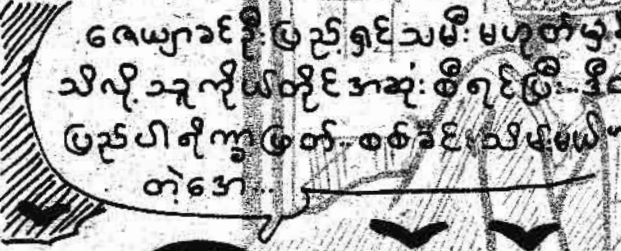 ဇေယျာခင်ဦး ပြည့်ရှင်သမီး မဟုတ်မှန်
သိလို့ သူကိုယ်တိုင်အဆုံးစီရင်ပြီး.. ဒီ
ပြည်ပါရိက္ခာဖြတ်.. စစ်ခင်း သိမ်းမယ်"
တဲ့အေ...